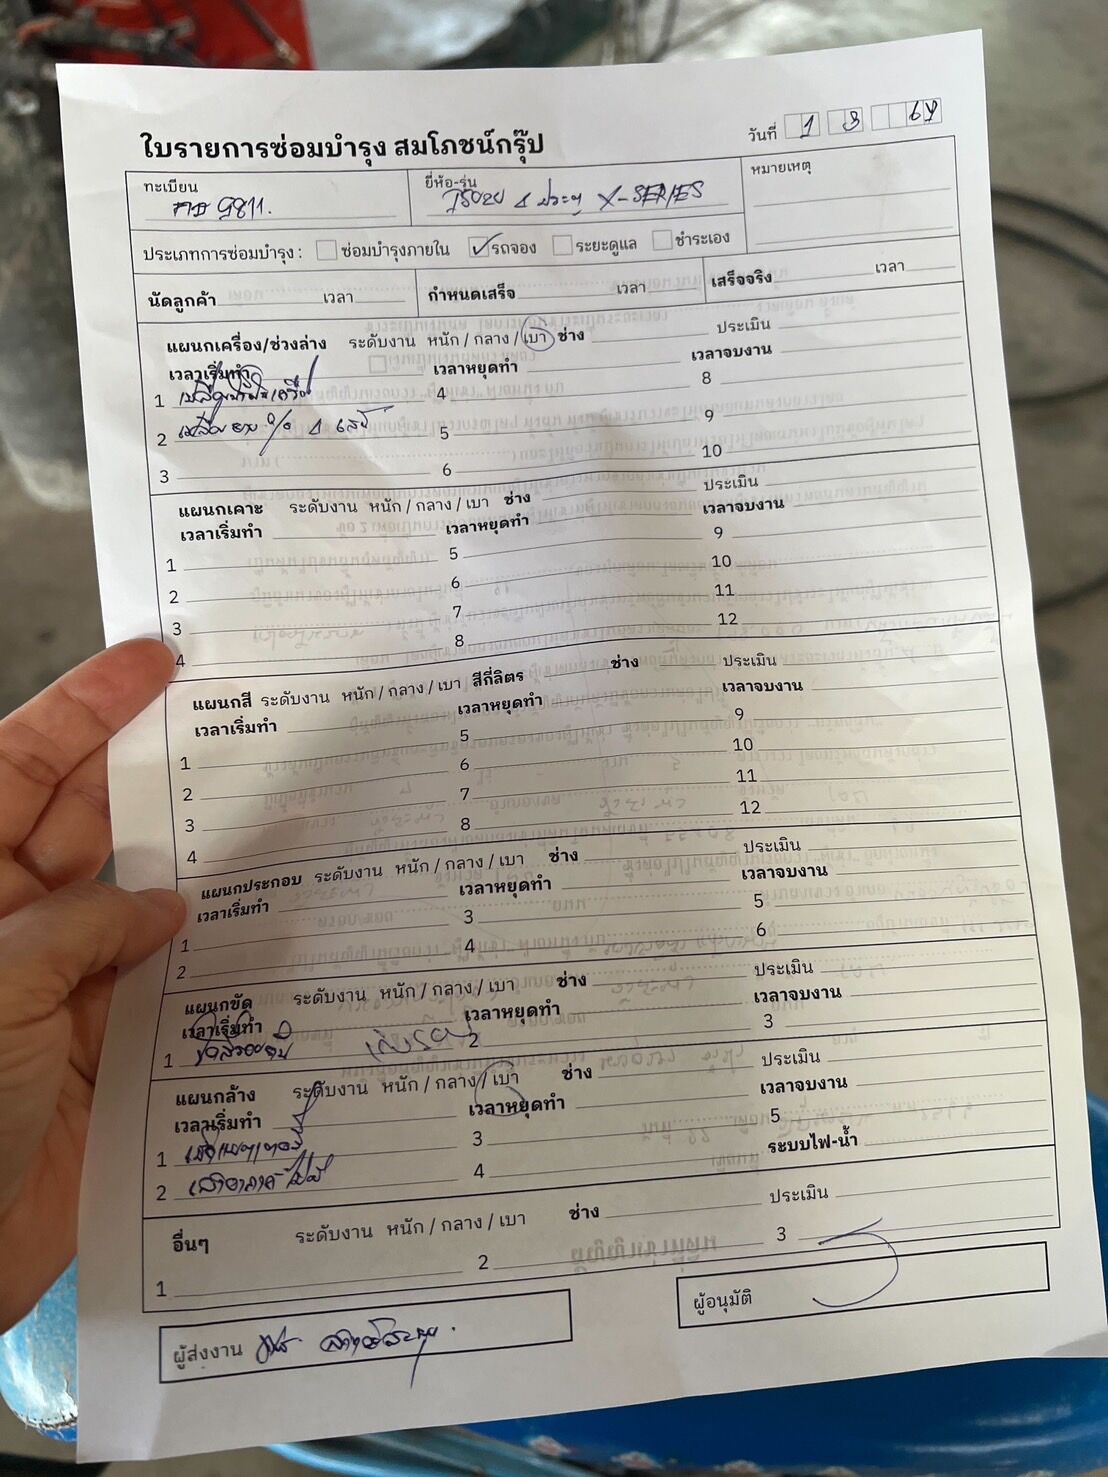 ใบรายการซ่อมบำรุง สมโภชน์กรุ๊ป
วันที่ 1 3 67
ทะเบียน
9811.
ยี่ห้อ-รุ่น
4 ประตู X-SERIES
หมายเหตุ
ประเภทการซ่อมบำรุง : ซ่อมบำรุงภายใน ✓ รถจอง ระยะดูแล ชำระเอง
นัดลูกค้า เวลา กำหนดเสร็จ เวลา เสร็จจริง เวลา
แผนกเครื่อง/ช่วงล่าง ระดับงาน หนัก / กลาง / เบา ช่าง ประเมิน
เวลาเริ่มทำ เวลาหยุดทำ เวลาจบงาน
1 เปลี่ยนน้ำมันเครื่อง 4 8
2 เปลี่ยนยาง 4 เส้น 5 9
3 6 10
แผนกเคาะ ระดับงาน หนัก / กลาง / เบา ช่าง ประเมิน
เวลาเริ่มทำ เวลาหยุดทำ เวลาจบงาน
1 5 9
2 6 10
3 7 11
4 8 12
แผนกสี ระดับงาน หนัก / กลาง / เบา สีกี่ลิตร ช่าง ประเมิน
เวลาเริ่มทำ เวลาหยุดทำ เวลาจบงาน
1 5 9
2 6 10
3 7 11
4 8 12
แผนกประกอบ ระดับงาน หนัก / กลาง / เบา ช่าง ประเมิน
เวลาเริ่มทำ เวลาหยุดทำ เวลาจบงาน
1 3 5
2 4 6
แผนกขัด ระดับงาน หนัก / กลาง / เบา ช่าง ประเมิน
เวลาเริ่มทำ เวลาหยุดทำ เวลาจบงาน
1 2 3
แผนกล้าง ระดับงาน หนัก / กลาง / เบา ช่าง ประเมิน
เวลาเริ่มทำ เวลาหยุดทำ เวลาจบงาน
1 3 5
2 4 ระบบไฟ-น้ำ
อื่นๆ ระดับงาน หนัก / กลาง / เบา ช่าง ประเมิน
1 2 3
ผู้ส่งงาน
ผู้อนุมัติ